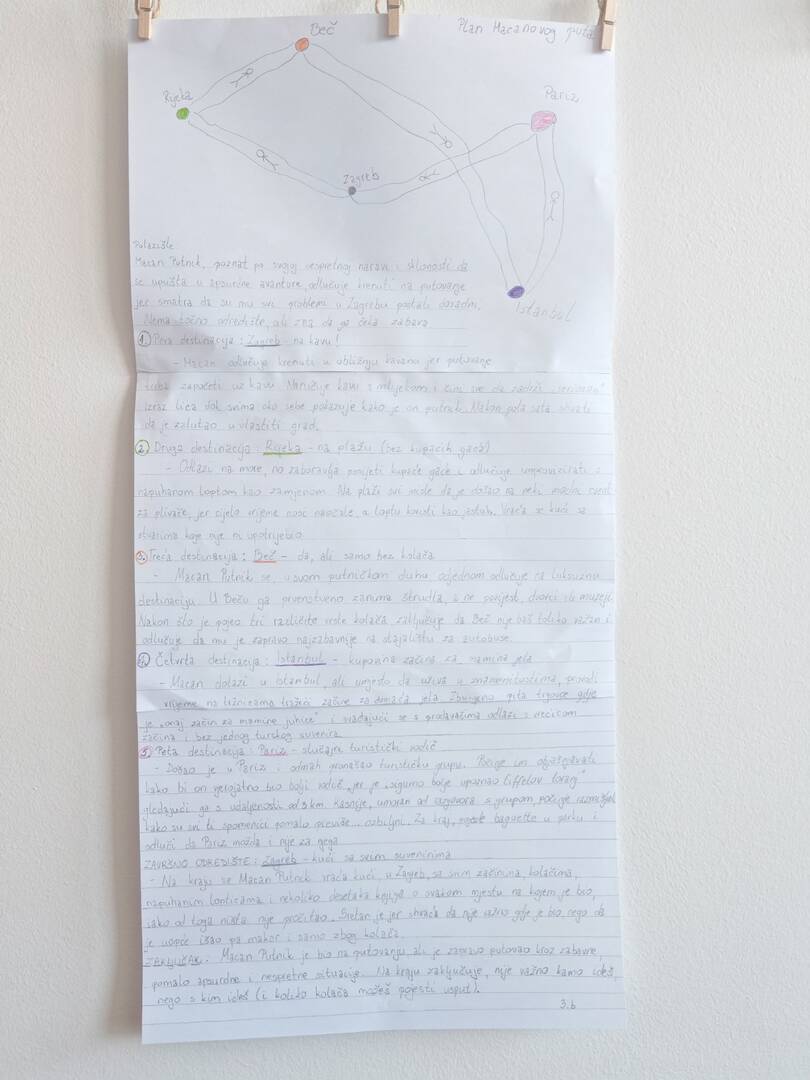 Plan Macanovog puta
Beč
Rijeka
Pariz
Zagreb
Istanbul
Polazište
Macan Putnik, poznat po svojoj nespretnoj naravi i sklonosti da
se upušta u apsurdne avanture, odlučuje krenuti na putovanje
jer smatra da su mu svi problemi u Zagrebu postali dosadni.
Nema točno odredište, ali zna da ga čeka zabava
1. Prva destinacija: Zagreb - na kavu!
- Macan odlučuje krenuti u obližnju kavanu jer putovanje
treba započeti uz kavu. Naručuje kavu s mlijekom i čini sve da zadrži „seriozan"
izraz lica dok svima oko sebe pokazuje kako je on putnik. Nakon pola sata shvati
da je zalutao u vlastiti grad.
2. Druga destinacija: Rijeka - na plažu (bez kupaćih gaća)
- Odlazi na more, no zaboravlja ponijeti kupaće gaće i odlučuje improvizirati s
napuhanom loptom kao zamjenom. Na plaži svi misle da je došao na neki modni
za plivače, jer cijelo vrijeme nosi naočale, a loptu koristi kao jastuk. Vraća se kući sa
stvarima koje nije ni upotrijebio
3. Treća destinacija: Beč - da, ali samo bez kolača
- Macan Putnik se, u svom putničkom duhu, odjednom odlučuje na luksuznu
destinaciju. U Beču ga prvenstveno zanima štrudla, a ne povijest, dvorci ili muzeji.
Nakon što je pojeo tri različite vrste kolača zaključuje da Beč nije baš toliko važan i
odlučuje da mu je zapravo najzabavnije na stajalištu za autobuse.
4. Četvrta destinacija: Istanbul - kupovina začina za mamina jela
- Macan dolazi u Istanbul, ali umjesto da uživa u znamenitostima, provodi
vrijeme na tržnicama tražeći začine za domaća jela. Zbunjeno pita trgovce gdje
je „onaj začin za mamine juhice" i svađajući se s prodavačima odlazi s vrećicom
začina i bez jednog turskog suvenira.
5. Peta destinacija: Pariz - slučajni turistički vodič
- Došao je u Pariz i odmah pronašao turističku grupu. Počinje im objašnjavati
kako bi on vjerojatno bio bolji vodič „jer je sigurno bolje upoznao Eiffelov toranj"
gledajući ga s udaljenosti od 3 km. Kasnije, umoran od razgovora s grupom, počinje razmišljati
kako su svi ti spomenici pomalo previše... ozbiljni. Za kraj, pojede baguette u parku i
odluči da Pariz možda i nije za njega
ZAVRŠNO ODREDIŠTE: Zagreb - kući sa svim suvenirima
- Na kraju se Macan Putnik vraća kući, u Zagreb, sa svim začinima, kolačima,
napuhanim lopticama i nekoliko desetaka knjiga o svakom mjestu na kojem je bio,
iako od toga ništa nije pročitao. Sretan je jer shvaća da nije važno gdje je bio, nego da
je uopće išao pa makar i samo zbog kolača.
ZAKLJUČAK: Macan Putnik je bio na putovanju ali je zapravo putovao kroz zabavne,
pomalo apsurdne i nespretne situacije. Na kraju zaključuje, nije važno kamo ideš,
nego s kim ideš (i koliko kolača možeš pojesti usput).
3.b